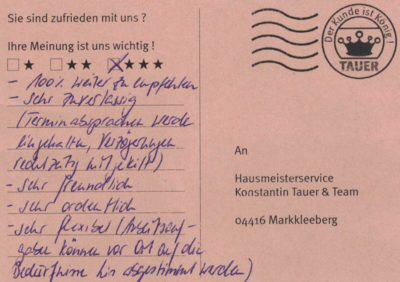 Sie sind zufrieden mit uns ?
Ihre Meinung ist uns wichtig !
★ ★★ ★★★
- 100% weiter zu empfehlen
- Sehr zuverlässig
(Terminabsprachen werden
eingehalten, Verzögerungen
rechtzeitig mitgeteilt)
- sehr freundlich
- sehr ordentlich
- sehr flexibel (Arbeitsauf-
gaben können vor Ort auf die
Bedürfnisse hin abgestimmt werden)
Der Kunde ist König !
TAUER
An
Hausmeisterservice
Konstantin Tauer & Team
04416 Markkleeberg